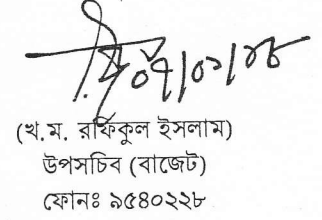 (খ.ম. রফিকুল ইসলাম)
উপসচিব (বাজেট)
ফোনঃ ৯৫৪০২২৮